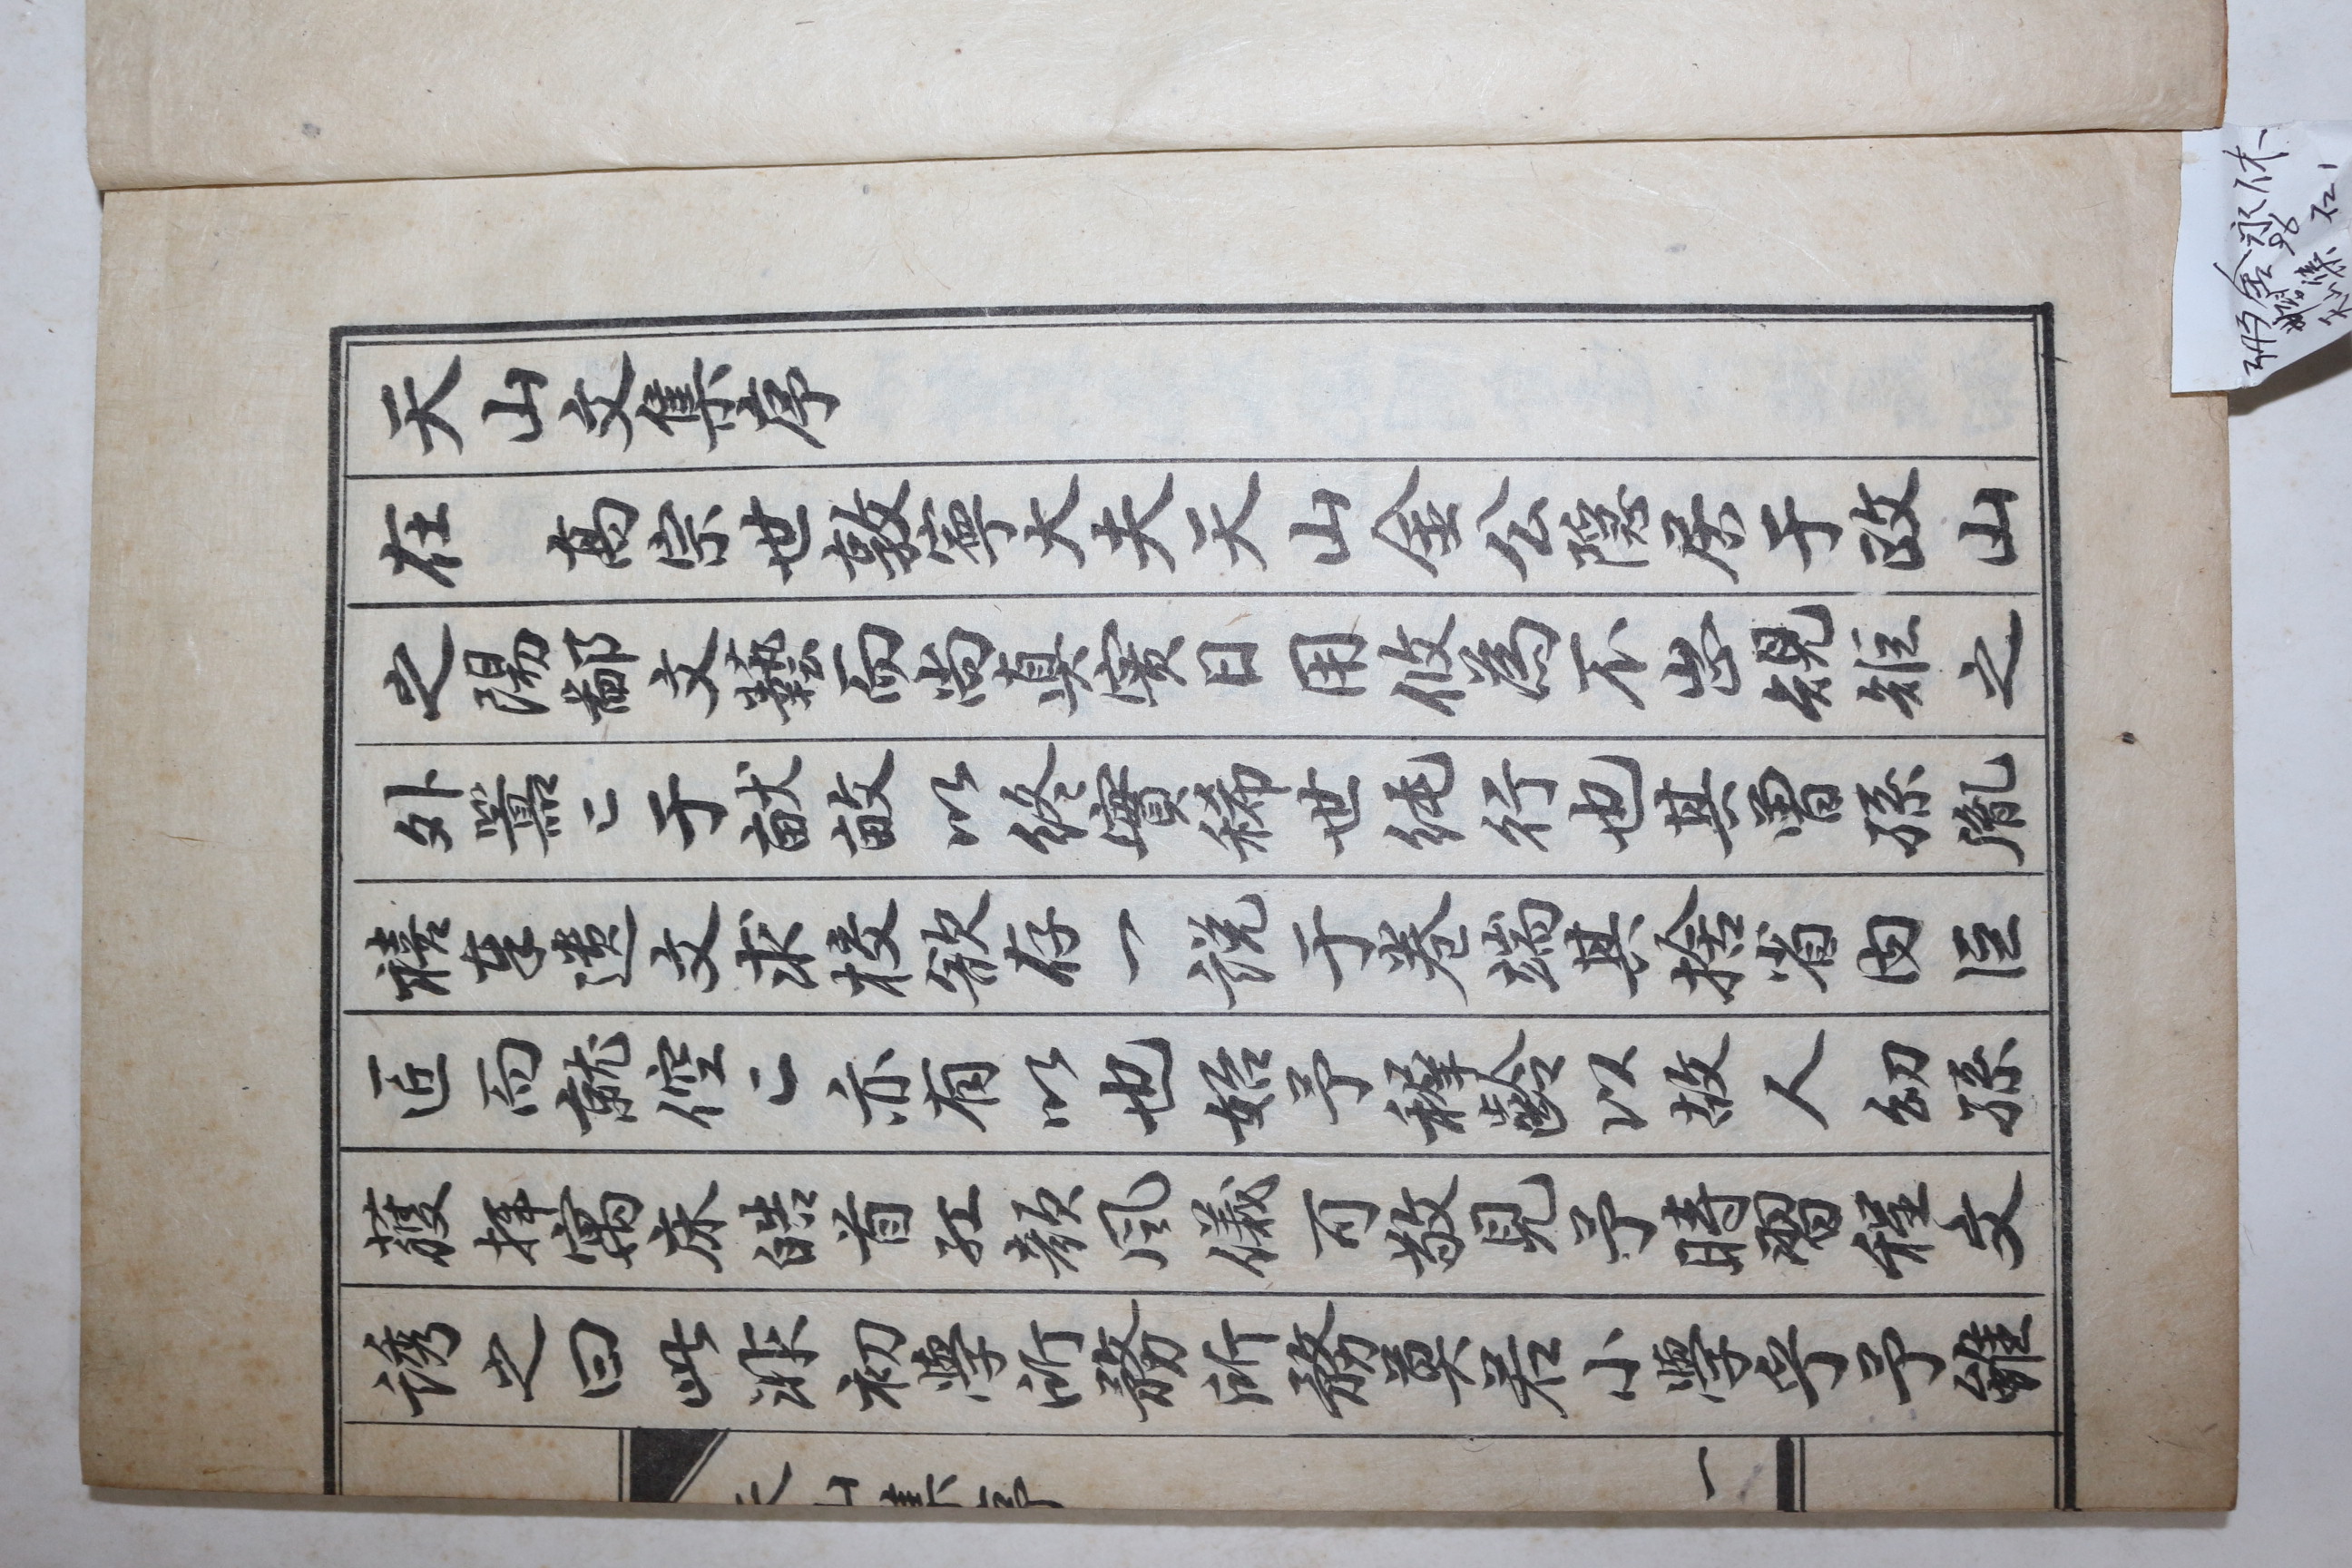 天山文集序
在　高宗世敦寧大夫天山金公隱居于政山
之陽鄙文藝而尚眞實日用攸為不出規矩之
外嚣〻于畎畝以終實稀世純行也其曾孫胤
禧奉遺文求校欲存一說于卷端其捨省內巨
匠而就倥〻亦有以也始予穉齡以故人幼孫
獲拝寓床皓首紅顔風儀可敬見予時習程文
誘之曰此非初學所務所務莫若小學乎予雖
天山集序
一
金永休
96
集